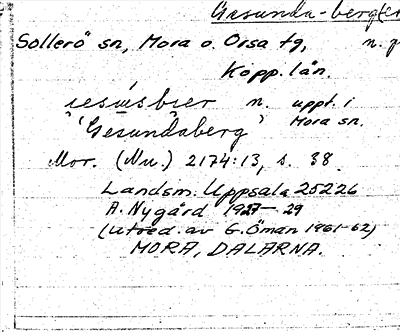 Gesunda-berg(et
Sollerö sn, Mora o. Orsa tg, n. g
Kopp. län.
n. uppt. i
'Gesundaberg' Mora sn.
Mor. (Nu.) 2174:13, s. 38.
Landsm. Uppsala 25226
A. Nygård 1927-29
(utred. av G. Öman 1961-62)
MORA, DALARNA.